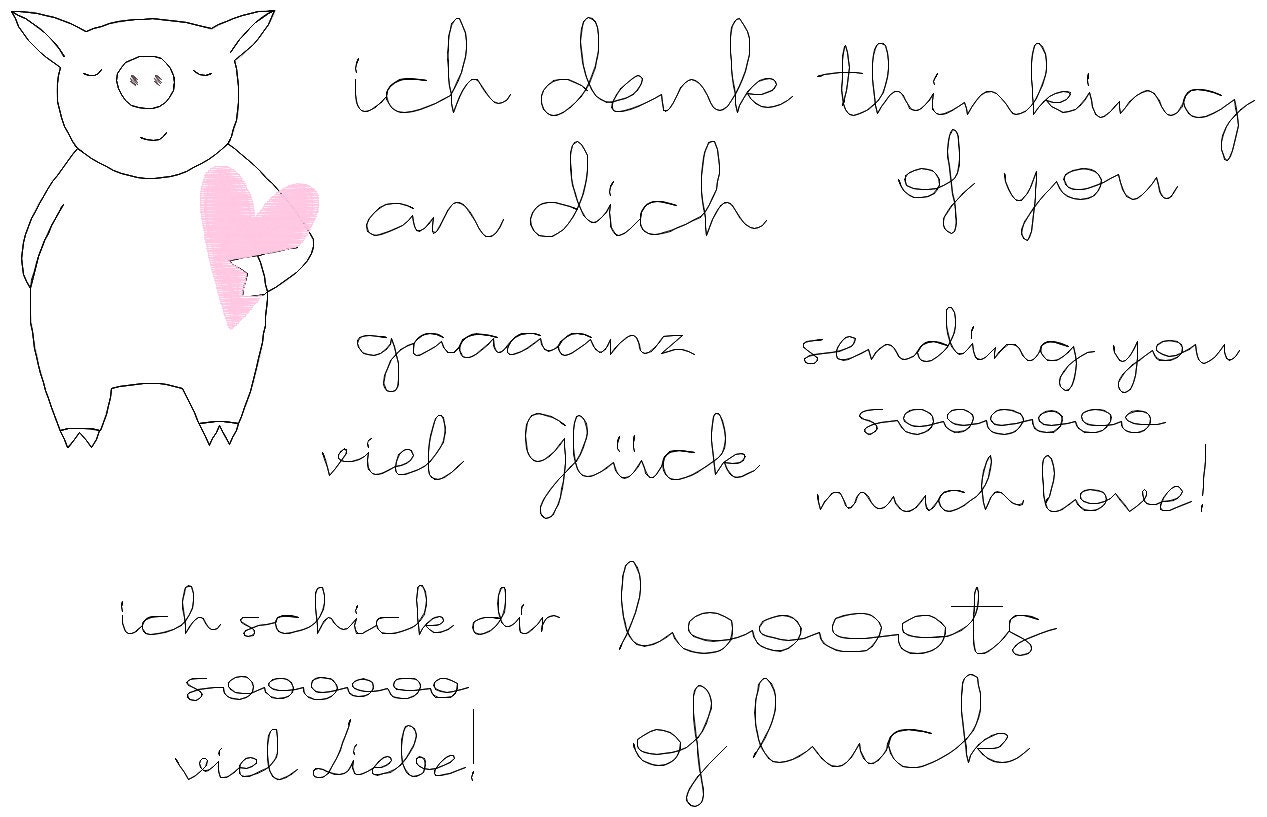 ich denk
an dich
thinking
of you
gaaaanz
viel Glück
sending you
soooooo
much love!
ich schick dir
soooooo
viel Liebe!
loooots
of luck